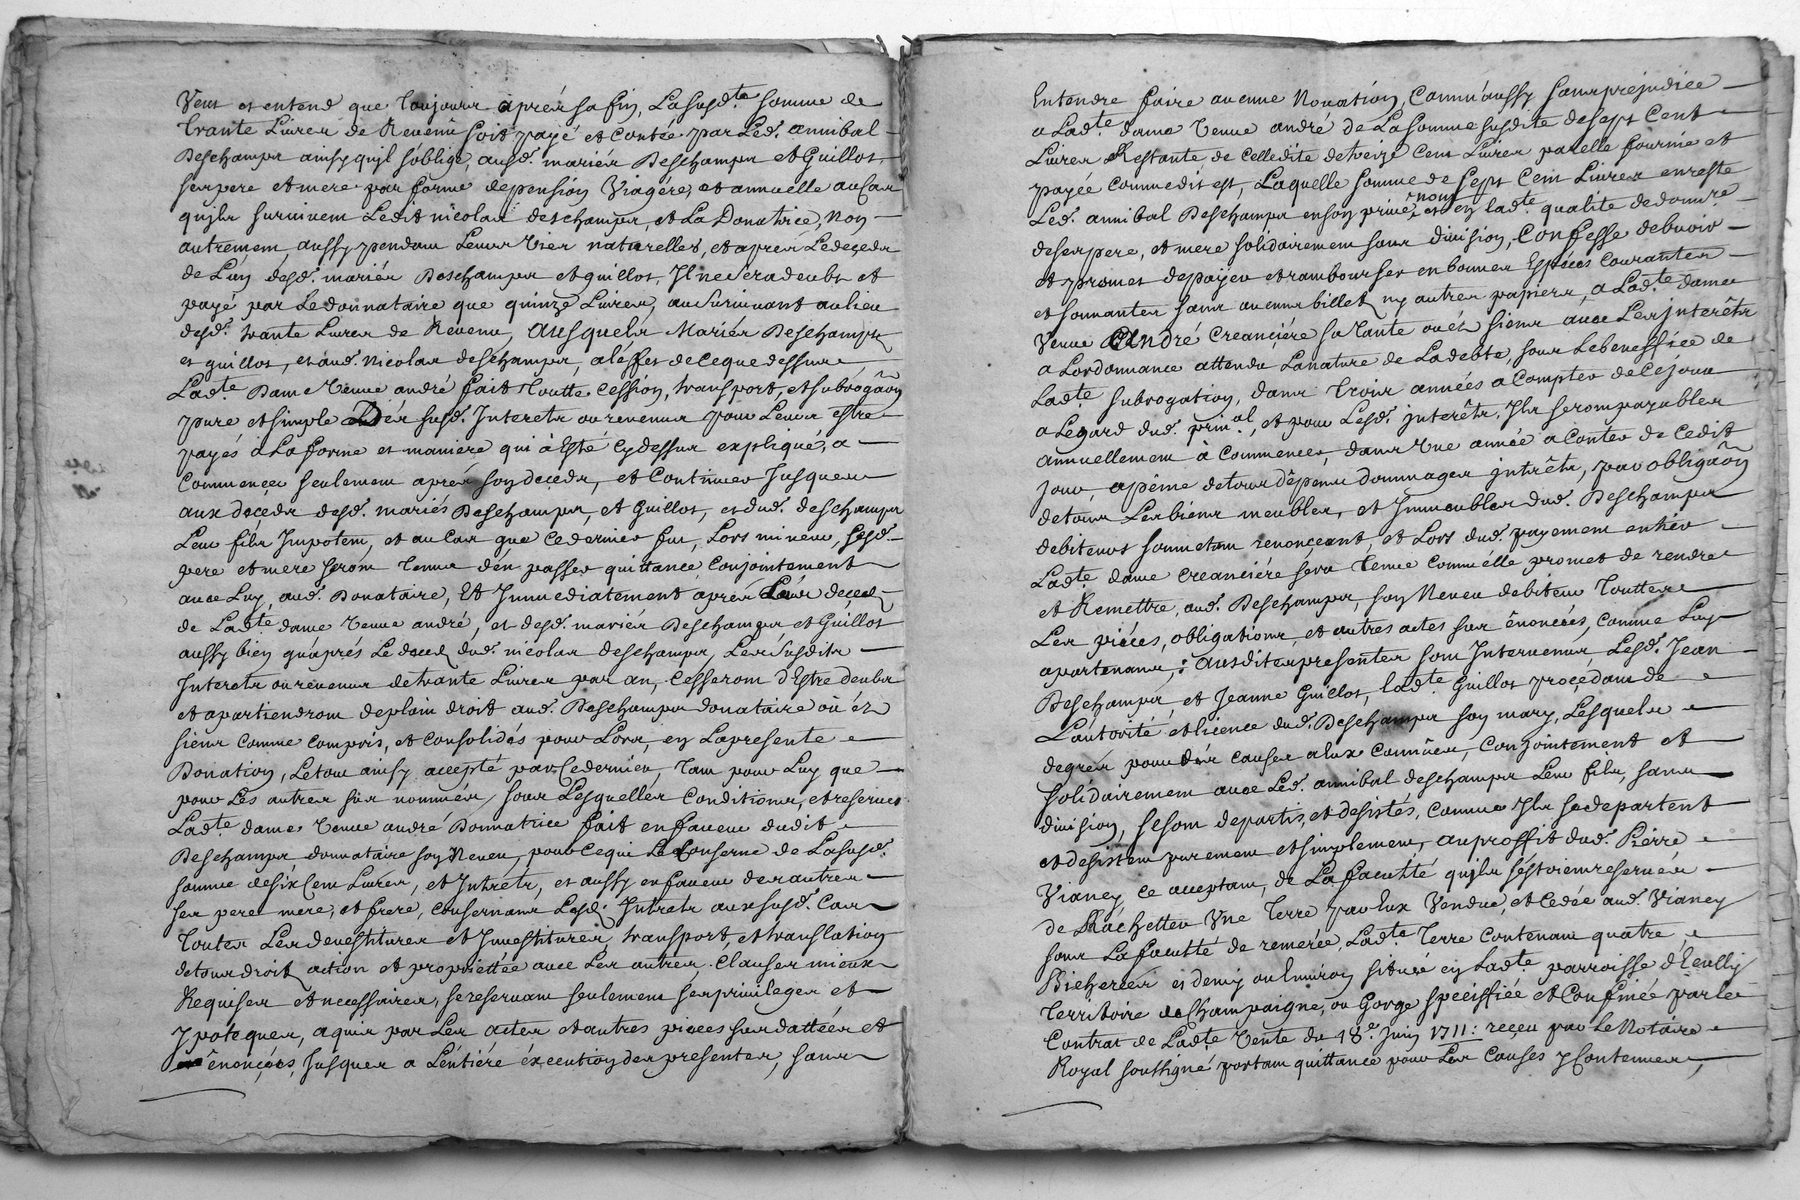 Veut et entend que toujours aprés sa fin, La susd.te somme de
trante Livres de Revenû soit payé et contée par Led. annibal
Deschamps ainsy quil s'oblige, ausd. mariés Deschamps et Guillot
ses pere et mere par forme de pension Viagére, et annuelle au cas
quils survivent Ledit nicolas deschamps, et La Donatrice, Non
autrement, aussy pendant Leurs Vies naturelles, et aprés Le deçeds
de L'un desd. mariés Deschamps et guillot, Il ne sera deubt et
payé par Le donnataire que quinze Livres, au survivant au lieu
desd. trante Livres de Revenu, Ausquels Mariés Deschamps
et guillot, et aud. Nicolas deschamps, a l'effet de ce que dessus
Lad.te Dame Veuve andré fait Toutte Cession, transport, et subrogâon
pure et simple Des susd. Interets ou revenus pour Leurs estre
payés a La forme et maniére qui à Esté cy dessus expliqué, a
Commencer seulement aprés son deçeds, et Continuer Jusques
aux deceds desd. mariés Deschamps, et Guillot, et dud. deschamps
Leur fils Impotent, et au Cas que ce dernier fut, Lors mineur, sesd.
pere et mere seront tenus d'en passer quittance Conjointement
avec Luy, aud. Donataire, Et Immediatement aprés Leurs deçeds
de Lad.te dame veuve andré, et desd. mariés Deschamps et Guillot
aussy bien qu'aprés Le deceds dud. nicolas deschamps, Les susdits
Interets ou revenus de trante Livres par an, cesseront d'Estre deubts
et apartiendront de plain droit aud. Deschamps donataire où és
siens Comme Compris, et Consolidés pour Lors, en La presente
Donation, Le tout ainsy accepté par Ce dernier, tant pour Luy que
pour Les autres sus nommés, sous Lesquelles Conditions, et reserves
Lad.te dame Veuve andré Donnatrice fait en faveur dudit
Deschamps donnataire son Neveu, pour Ce qui Le Conserne de La susd.
somme de six Cent Livres, et Intréts, et aussy en faveur des autres
ses pere mere, et frere, Consernant Lesd. Intrets aux susd. Cas
Toutes Les devestitures et Investitures, transport, et translation
de tous droit, action et propriettée avec Les autres Clauses mieux
Requises et necessaires, se reservant seulement ses privileges et
Ypoteques, aquis par Les actes et autres pieces sus dattées et
ênonçées, Jusques a L'entiére éxecution des presentes, sans
Entendre faire aucune Novation, Comm'aussy sans prejudice
a Lad.te dame Veuve andré de La somme susdite de sept Cent
Livres Restante de Celle dite de treize Cent Livres par elle fournie et
payée Comme dit est, Laquelle somme de sept Cent Livres en reste
Led. annibal Deschamps en son privé nom et en lad.te qualité de donn.re
de ses pere, et mere solidairement sans division, Confesse debvoir
et promet de payer et rambourser en bonnes Espéces Courantes
et sonnantes sans aucuns billet, ny autres papiers, a Lad.te dame
Veuve André Creanciére sa tante ou és siens avec Les Interêts
a L'ordonnance attendu La nature de La debte, sous Le beneffice de
Lad.te subrogation, dans Trois années a Compter de Cé jour
a L'egard dud. prin.al, et pour Lesd. interêts, Ils seront payables
annuellement à Commencer, dans Une année a Conter de Cedit
jour, a péine de tous dêpens dommages intrêts, par obligâon
de tous Les biens meubles, et Immeubles dud. Deschamps
debiteur soumetant renonceant, et Lors dud. payement entier
Lad.te dame Creanciére sera tenue Comm'elle promet de rendre
et Remettre, aud. Deschamps, son Neveu debiteur Touttes
Les piéces, obligations, et autres actes sus énoncés, comme Luy
apartenans; Ausdites presentes sont Intervenus, Lesd. Jean
Deschamps et Jeanne Guillot, lad.te Guillot proçedant de
L'autorité et licence dud. Deschamps son mary, Lesquels
degrés pour des causes a Eux Connûes, Conjointement et
solidairement avec Led. annibal deschamps Leur fils, sans
division, se sont departis, et desistés, Comme Ils se departent
et desistent purement et simplement, au proffit dud. Pierre
Vianey, ce acceptant, de La faculté quils s'éstoient reservés
de Rachetter Une Terre par Eux Vendue, et Cedée aud. Vianey
sous La faculté de remerée, Lad.te Terre Contenant quatre
Bicherées et demy ou Environ situéé en Lad.te parroisse d'Ecully
Territoire de Champaigne, ou Gorge speciffiée et Confinée par Le
Contrat de Lad.te Vente du 18.e Juin 1711: reçeu par Le Notaire
Royal soussigné portant quittance pour Les Causes y Contenues,